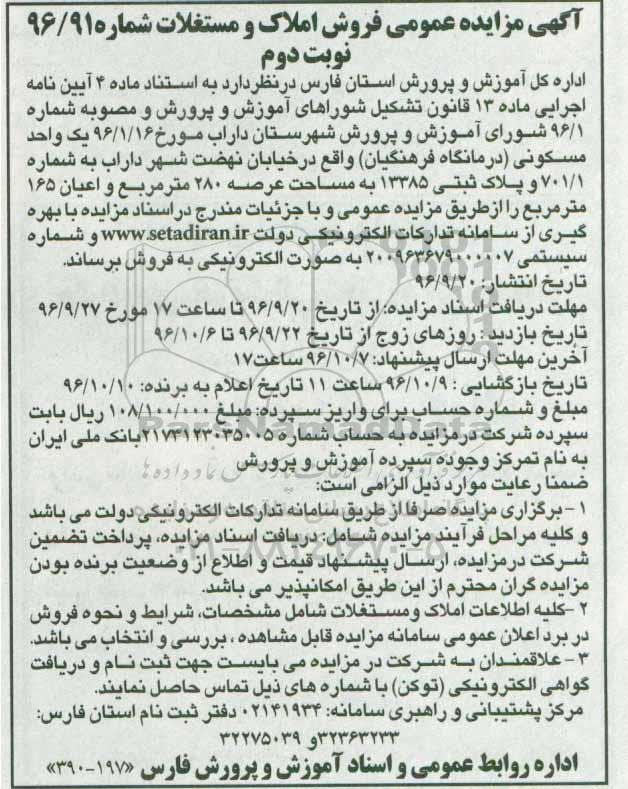 آگهی مزایده عمومی فروش املاک و مستغلات شماره ۹۶/۹۱
نوبت دوم
اداره کل آموزش و پرورش استان فارس در نظر دارد به استناد ماده ۴ آیین نامه
اجرایی ماده ۱۳ قانون تشکیل شوراهای آموزش و پرورش و مصوبه شماره
۹۶/۱ شورای آموزش و پرورش شهرستان داراب مورخ ۹۶/۱/۱۶ یک واحد
مسکونی (درمانگاه فرهنگیان) واقع در خیابان نهضت شهر داراب به شماره
۷۰۱/۱ و پلاک ثبتی ۱۳۳۸۵ به مساحت عرصه ۲۸۰ مترمربع و اعیان ۱۶۵
مترمربع را از طریق مزایده عمومی و با جزئیات مندرج در اسناد مزایده با بهره
گیری از سامانه تدارکات الکترونیکی دولت www.setadiran.ir و شماره
سیستمی ۲۰۰۹۶۳۶۷۹۰۰۰۰۰۷ به صورت الکترونیکی به فروش برساند.
تاریخ انتشار: ۹۶/۹/۲۰
مهلت دریافت اسناد مزایده: از تاریخ ۹۶/۹/۲۰ تا ساعت ۱۷ مورخ ۹۶/۹/۲۷
تاریخ بازدید: روزهای زوج از تاریخ ۹۶/۹/۲۲ تا ۹۶/۱۰/۶
آخرین مهلت ارسال پیشنهاد: ۹۶/۱۰/۷ ساعت ۱۷
تاریخ بازگشایی: ۹۶/۱۰/۹ ساعت ۱۱ تاریخ اعلام به برنده: ۹۶/۱۰/۱۰
مبلغ و شماره حساب برای واریز سپرده: مبلغ ۱۰۸/۱۰۰/۰۰۰ ریال بابت
سپرده شرکت در مزایده به حساب شماره ۲۱۷۳۱۲۳۰۳۵۰۰۵ بانک ملی ایران
به نام تمرکز وجوه سپرده آموزش و پرورش
ضمنا رعایت موارد ذیل الزامی است:
۱- برگزاری مزایده صرفا از طریق سامانه تدارکات الکترونیکی دولت می باشد
و کلیه مراحل فرآیند مزایده شامل: دریافت اسناد مزایده، پرداخت تضمین
شرکت در مزایده، ارسال پیشنهاد قیمت و اطلاع از وضعیت برنده بودن
مزایده گران محترم از این طریق امکانپذیر می باشد.
۲- کلیه اطلاعات املاک و مستغلات شامل مشخصات، شرایط و نحوه فروش
در برد اعلان عمومی سامانه مزایده قابل مشاهده، بررسی و انتخاب می باشد.
۳- علاقمندان به شرکت در مزایده می بایست جهت ثبت نام و دریافت
گواهی الکترونیکی (توکن) با شماره های ذیل تماس حاصل نمایند.
مرکز پشتیبانی و راهبری سامانه: ۰۲۱۴۱۹۳۴ دفتر ثبت نام استان فارس:
۳۲۳۶۳۲۳۳ و ۳۲۲۷۵۰۳۹
اداره روابط عمومی و اسناد آموزش و پرورش فارس «۱۹۷-۳۹۰»
ParsNamadData
۰۲۱-۸۸۳۴۹۶۷۰-۵